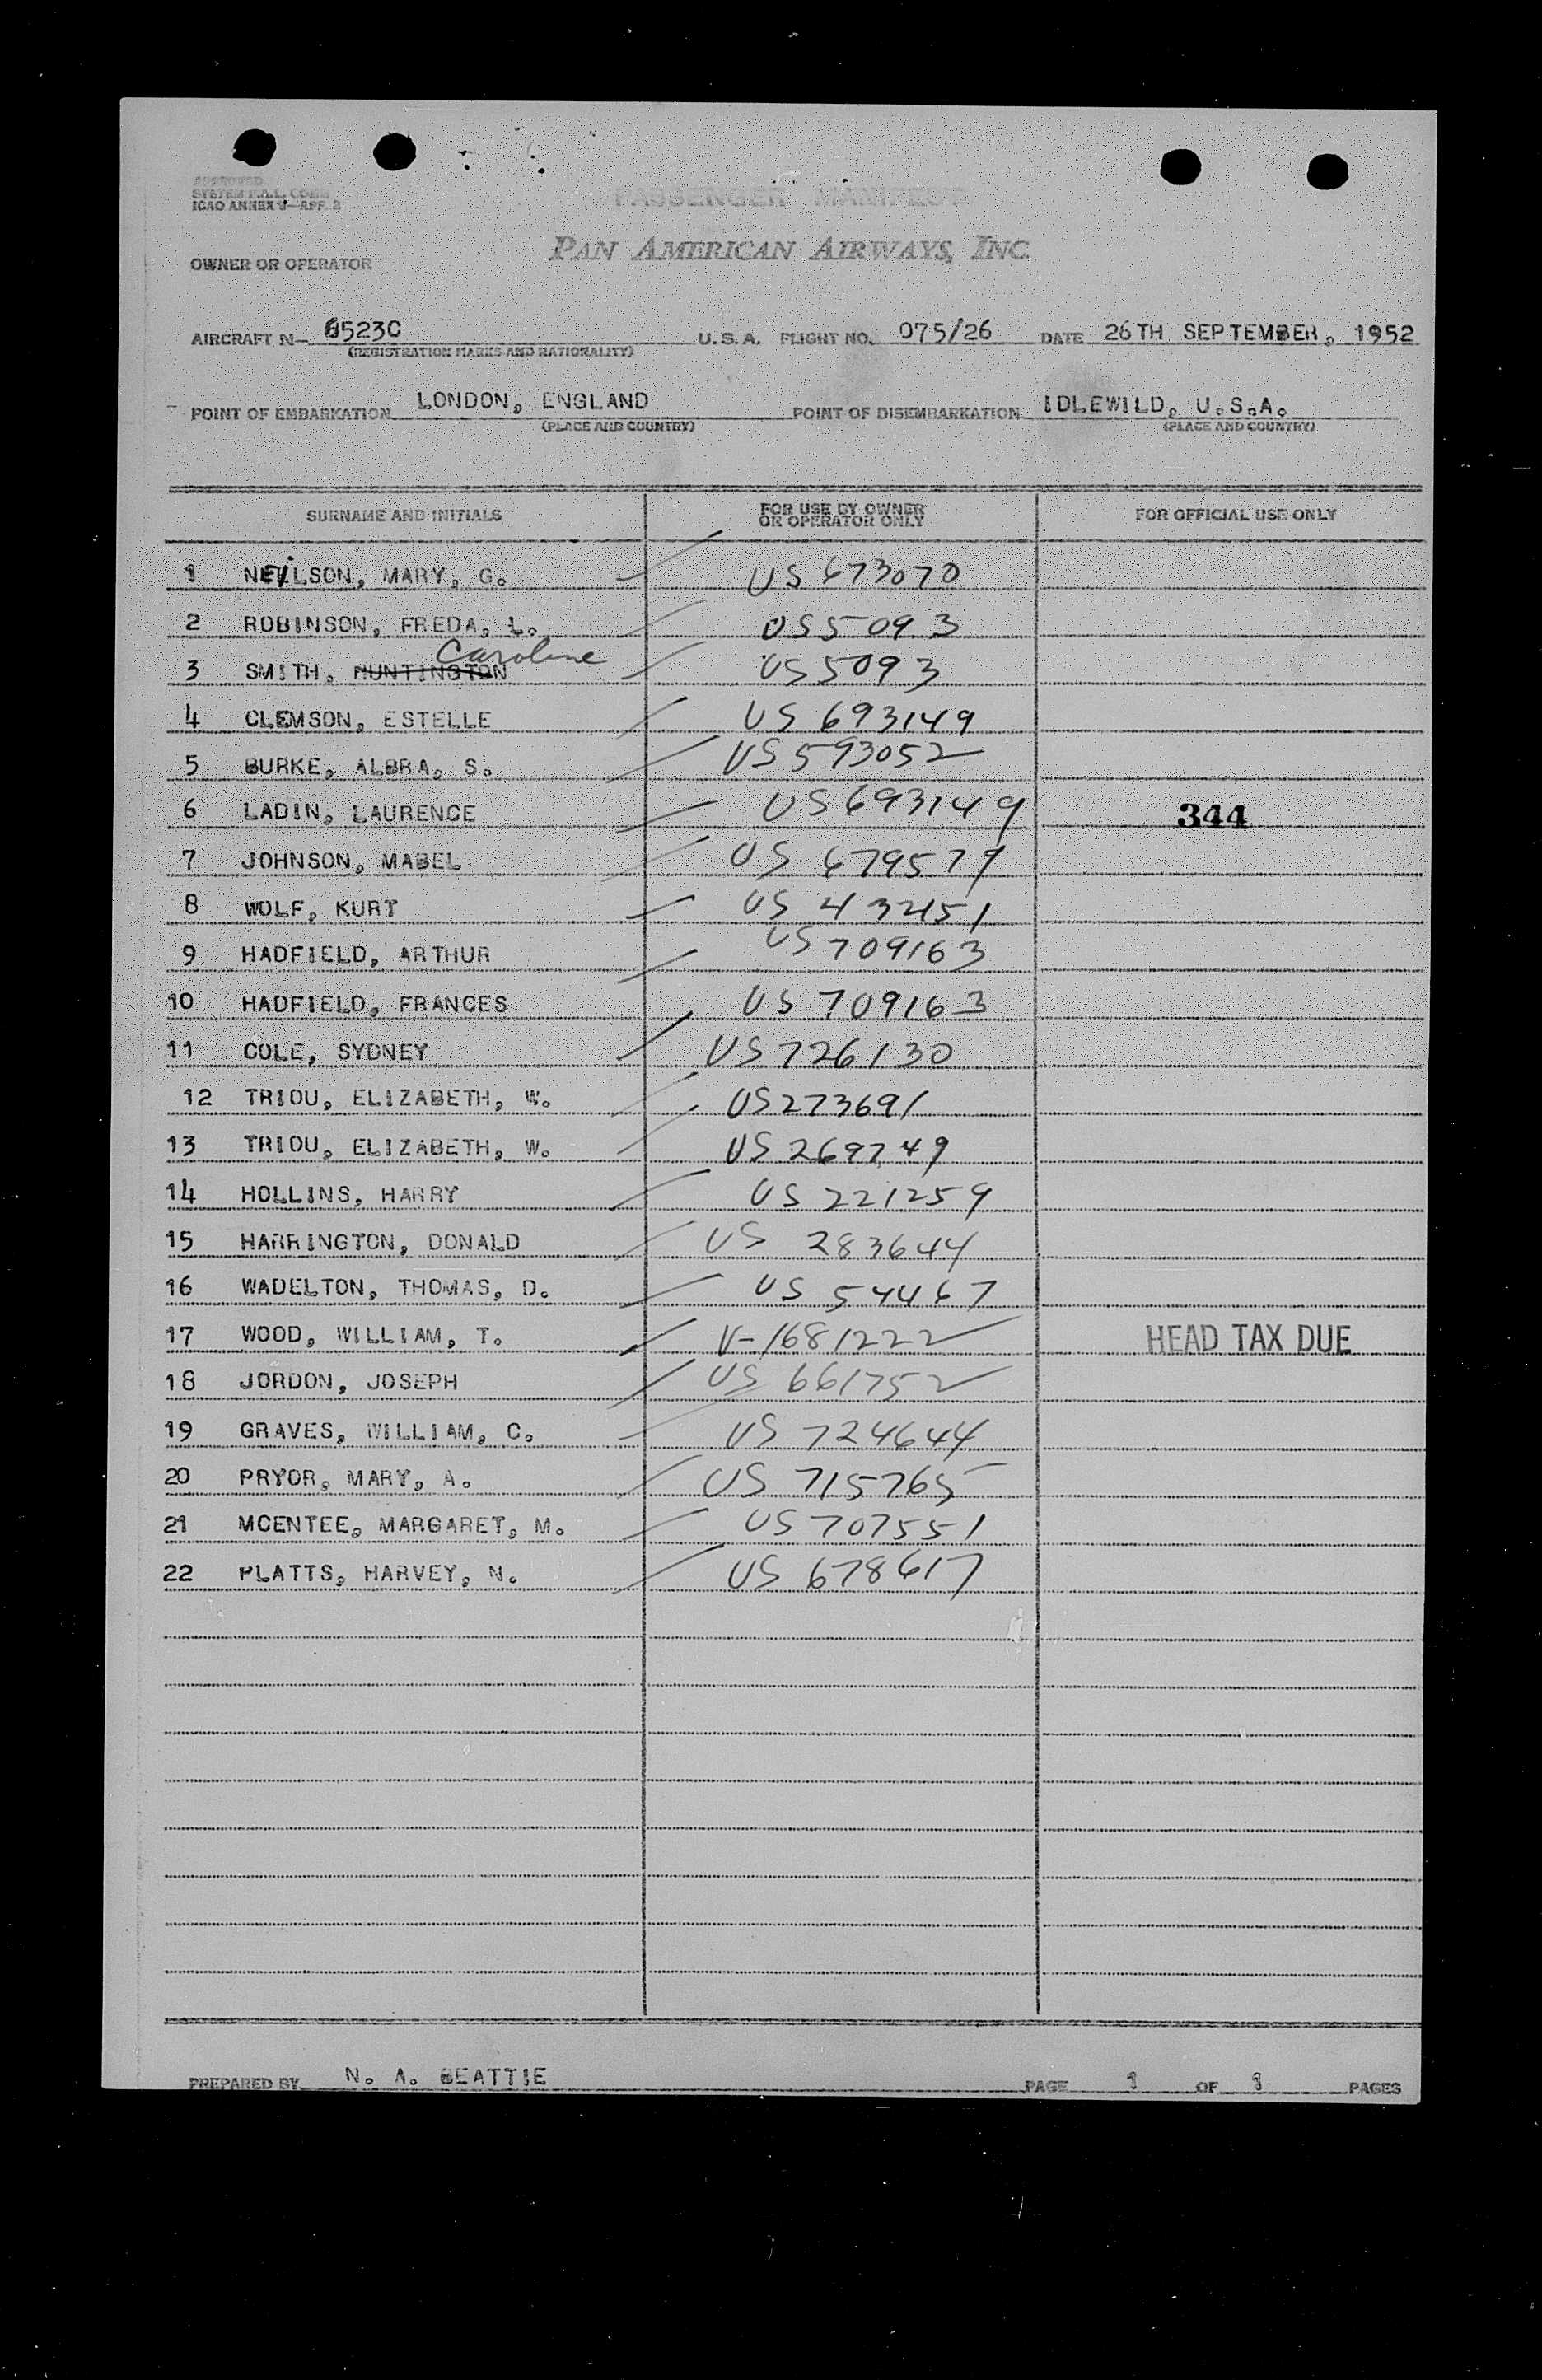 APPROVED
SYSTEM F.A.L. COMM
ICAO ANNEX 9—APP. 3
PASSENGER MANIFEST
OWNER OR OPERATOR PAN AMERICAN AIRWAYS, INC.
AIRCRAFT N— 6523C U.S.A. FLIGHT NO. 075/26 DATE 26TH SEPTEMBER, 1952
(REGISTRATION MARKS AND NATIONALITY)
POINT OF EMBARKATION LONDON, ENGLAND POINT OF DISEMBARKATION IDLEWILD, U.S.A.
(PLACE AND COUNTRY) (PLACE AND COUNTRY)
SURNAME AND INITIALS FOR USE BY OWNER OR OPERATOR ONLY FOR OFFICIAL USE ONLY
1 NEILSON, MARY, G. US 673070
2 ROBINSON, FREDA, L. US5093
Caroline
3 SMITH, HUNTINGTON US5093
4 CLEMSON, ESTELLE US 693149
5 BURKE, ALBRA, S. US593052
6 LADIN, LAURENCE US693149 344
7 JOHNSON, MABEL US 679579
8 WOLF, KURT US 432151
9 HADFIELD, ARTHUR US 709163
10 HADFIELD, FRANCES US 709163
11 COLE, SYDNEY US726130
12 TRIOU, ELIZABETH, W. US273691
13 TRIOU, ELIZABETH, W. US269749
14 HOLLINS, HARRY US 221259
15 HARRINGTON, DONALD US 283644
16 WADELTON, THOMAS, D. US 54467
17 WOOD, WILLIAM, T. V-1681222 HEAD TAX DUE
18 JORDON, JOSEPH US 661752
19 GRAVES, WILLIAM, C. US 724644
20 PRYOR, MARY, A. US 715765
21 MCENTEE, MARGARET, M. US 707551
22 PLATTS, HARVEY, N. US 678617
PREPARED BY N. A. BEATTIE PAGE 1 OF 1 PAGES